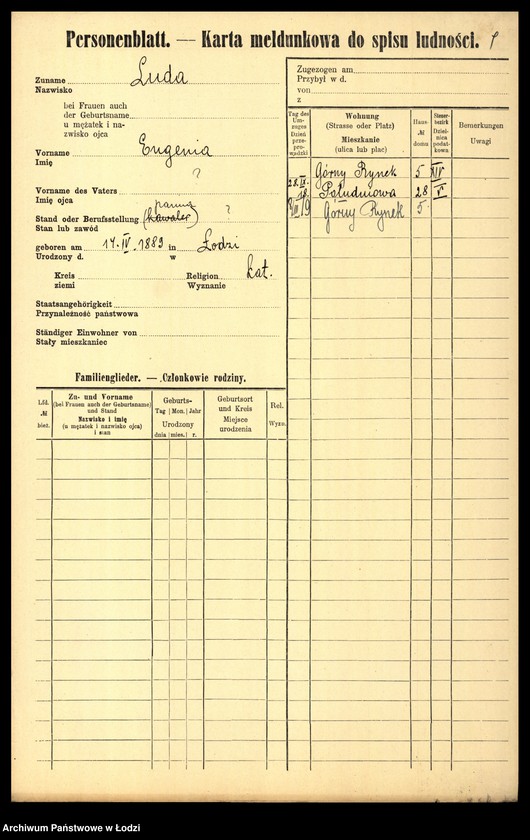 Personenblatt. — Karta meldunkowa do spisu ludności.
Zuname Luda
Nazwisko
bei Frauen auch
der Geburtsname
u mężatek i na-
zwisko ojca
Vorname Eugenia
Imię
?
Vorname des Vaters
Imię ojca
panna
Stand oder Berufsstellung (kawaler) ?
Stan lub zawód
geboren am 17. IV. 1889 in Łodzi
Urodzony d. w
Kreis Religion kat.
ziemi Wyznanie
Staatsangehörigkeit
Przynależność państwowa
Ständiger Einwohner von
Stały mieszkaniec
Familienglieder. — Członkowie rodziny.
Lfd. № bież.
Zu- und Vorname
(bei Frauen auch der Geburtsname)
und Stand
Nazwisko i imię
(u mężatek i nazwisko ojca)
i stan
Geburts-
Tag Mon. Jahr
Urodzony
dnia mies. r.
Geburtsort
und Kreis
Miejsce
urodzenia
Rel.
Wyzn.
Zugezogen am
Przybył w d.
von
z
Tag des
Um-
zuges
Dzień
prze-
prowa-
dzki
Wohnung
(Strasse oder Platz)
Mieszkanie
(ulica lub plac)
Haus-
№
domu
Steuer-
bezirk
Dziel-
nica
podat-
kowa
Bemerkungen
Uwagi
Górny Rynek 5 XIV
28. IX. 18. Południowa 28 V
Górny Rynek 5
Archiwum Państwowe w Łodzi